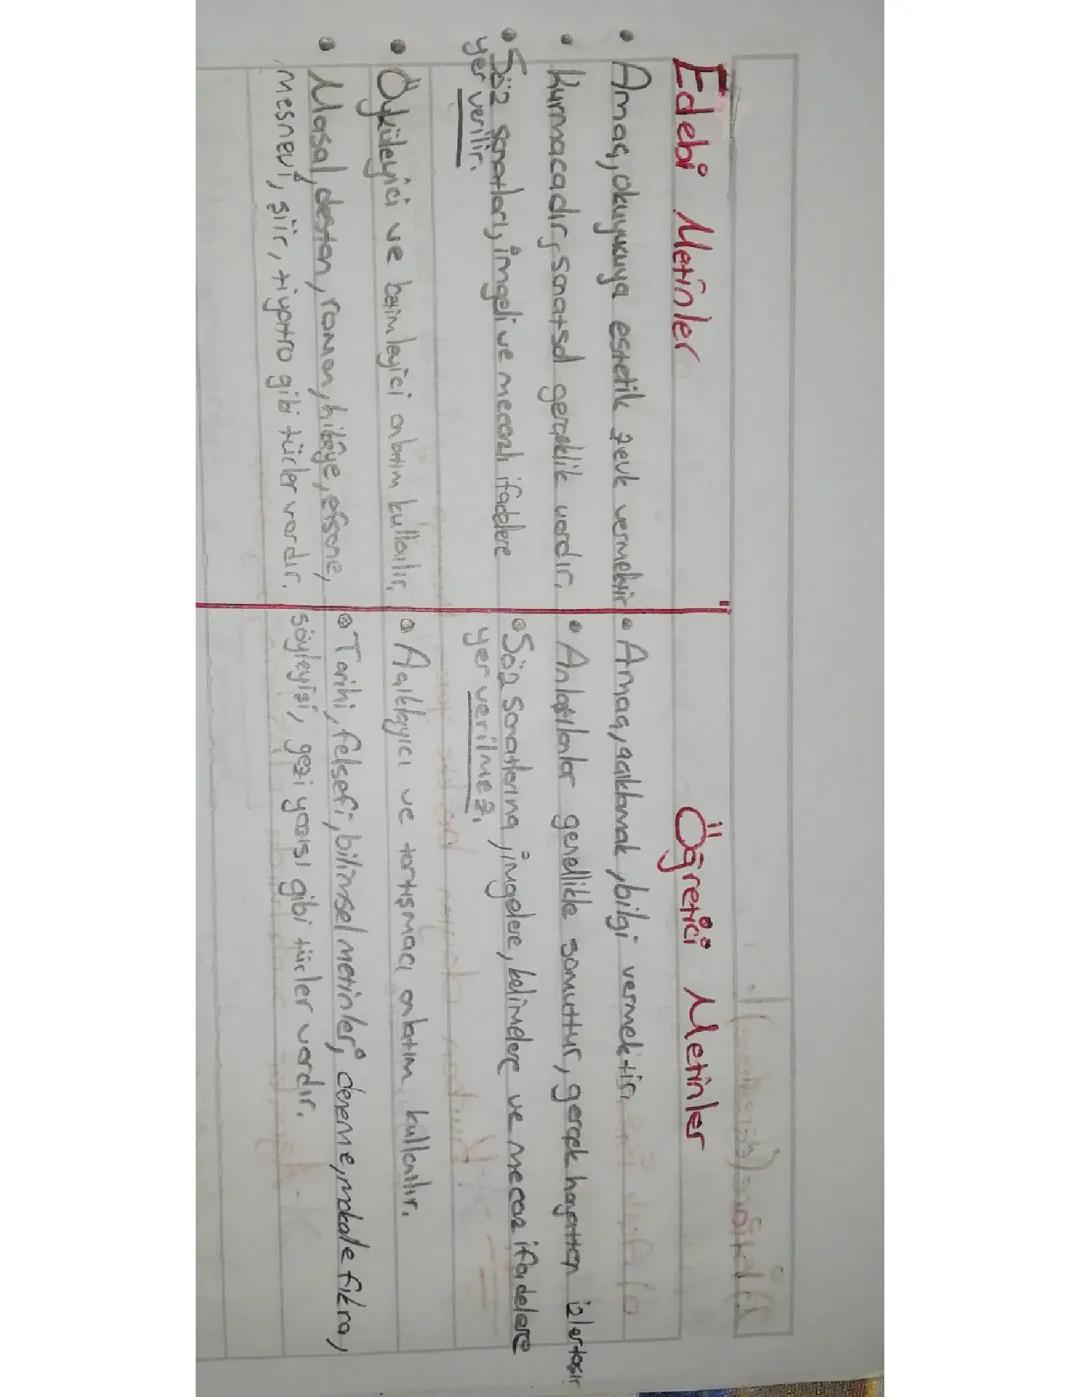 Edebi Metinler
• Amaç, okuyucuya estetik zevk vermektir
• Kurmacadır, sanatsal gerçeklik vardır.
• Söz sanatları, imgeli ve mecazlı ifadelere
yer verilir.
• Öyküleyici ve betimleyici anlatım kullanılır.
• Masal, destan, roman, hikâye, efsane,
mesnevi, şiir, tiyatro gibi türler vardır.
Öğretici Metinler
• Amaç, açıklamak, bilgi vermektir.
• Anlatılanlar genellikle somuttur, gerçek hayattan izler taşır
• Söz sanatlarına, imgelere, ve mecaz ifadelere
yer verilmez.
• Açıklayıcı ve tartışmacı anlatım kullanılır.
• Tarihi, felsefi, bilimsel metinler, deneme, makale fıkra,
söyleyişi, gezi yazısı gibi türler vardır.